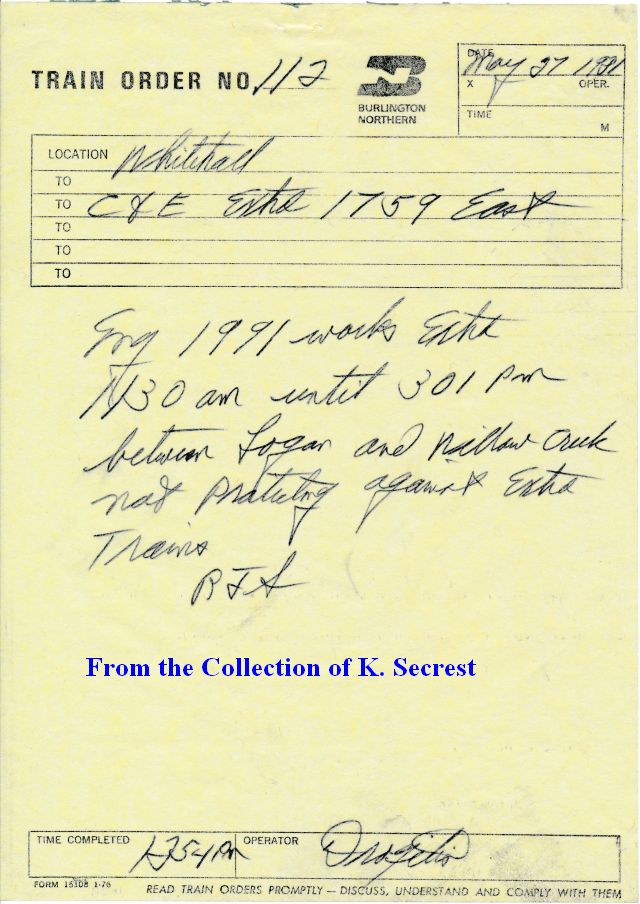 TRAIN ORDER NO. 112
BURLINGTON
NORTHERN
DATE
May 27 1981
X OPER.
TIME
M
LOCATION Whitehall
TO
TO C & E Extra 1759 East
TO
TO
TO
Eng 1991 works Extra
1130 am until 301 Pm
between Logan and Willow Creek
not Protecting against Extra
Trains
RJS
From the Collection of K. Secrest
TIME COMPLETED 1254 PM OPERATOR
FORM 15108 1-76
READ TRAIN ORDERS PROMPTLY — DISCUSS, UNDERSTAND AND COMPLY WITH THEM